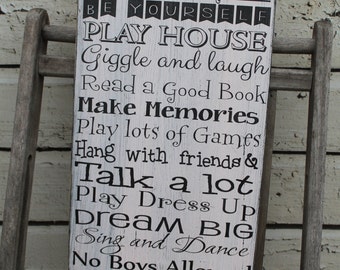 BE YOURSELF
PLAY HOUSE
Giggle and laugh
Read a Good Book
Make Memories
Play lots of Games
Hang with friends &
Talk a lot
Play Dress Up
DREAM BIG
Sing and Dance
No Boys Allowed